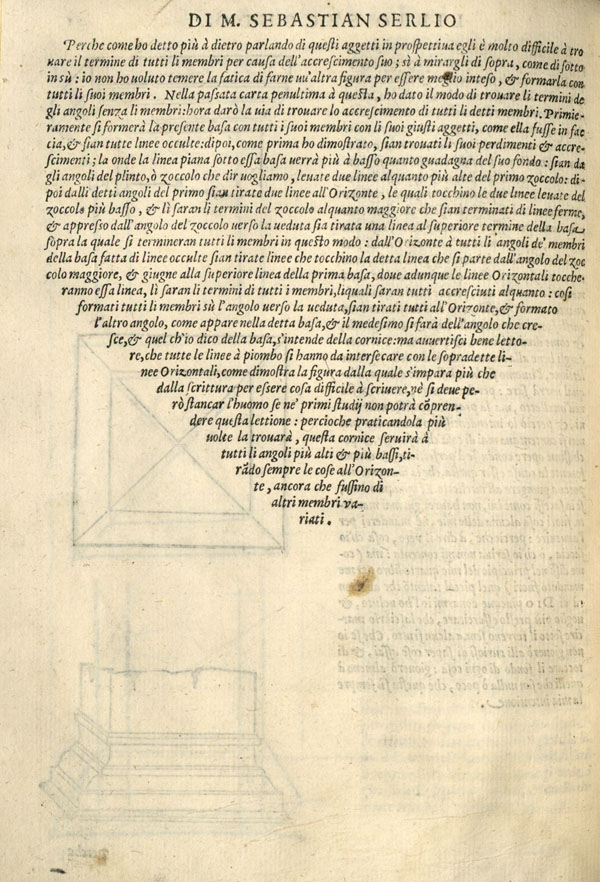 DI M. SEBASTIAN SERLIO
Perche come ho detto più à dietro parlando di questi aggetti in prospettiua egli è molto difficile à tro
uare il termine di tutti li membri per causa dell'accrescimento suo; sì à mirargli di sopra, come di sotto
in sù: io non ho uoluto temere la fatica di farne un'altra figura per essere meglio inteso, & formarla con
tutti li suoi membri. Nella passata carta penultima à questa, ho dato il modo di trouare li termini de
gli angoli senza li membri: hora darò la uia di trouare lo accrescimento di tutti li detti membri. Primie-
ramente si formerà la presente basa con tutti i suoi membri con li suoi giusti aggetti, come ella fusse in fac
cia, & sian tutte linee occulte: dipoi, come prima ho dimostrato, sian trouati li suoi perdimenti & accre-
scimenti; la onde la linea piana sotto essa basa uerrà più à basso quanto guadagna del suo fondo: sian da
gli angoli del plinto, ò zoccolo che dir uogliamo, leuate due linee alquanto più alte del primo zoccolo: di-
poi dalli detti angoli del primo sian tirate due linee all'Orizonte, le quali tocchino le due linee leuate del
zoccolo più basso, & lì saran li termini del zoccolo alquanto maggiore che sian terminati di linee ferme,
& appresso dall'angolo del zoccolo uerso la ueduta sia tirata una linea al superior termine della basa
sopra la quale si termineran tutti li membri in questo modo: dall'Orizonte à tutti li angoli de' membri
della basa fatta di linee occulte sian tirate linee che tocchino la detta linea che si parte dall'angolo del zoc
colo maggiore, & giugne alla superiore linea della prima basa, doue adunque le linee Orizontali tocche-
ranno essa linea, lì saran li termini di tutti i membri, liquali saran tutti accresciuti alquanto: così
formati tutti li membri sù l'angolo uerso la ueduta, sian tirati tutti all'Orizonte, & formato
l'altro angolo, come appare nella detta basa, & il medesimo si farà dell'angolo che cre-
sce, & quel ch'io dico della basa, s'intende della cornice: ma auuertisci bene letto-
re, che tutte le linee à piombo si hanno da intersecare con le sopradette li-
nee Orizontali, come dimostra la figura dalla quale s'impara più che
dalla scrittura per essere cosa difficile à scriuere, nè si deue pe-
rò stancar l'huomo se ne' primi studij non potrà cõpren-
dere questa lettione: percioche praticandola più
uolte la trouarà, questa cornice seruirà à
tutti li angoli più alti & più bassi, ti-
rãdo sempre le cose all'Orizon-
te, ancora che fussino di
altri membri ua-
riati.